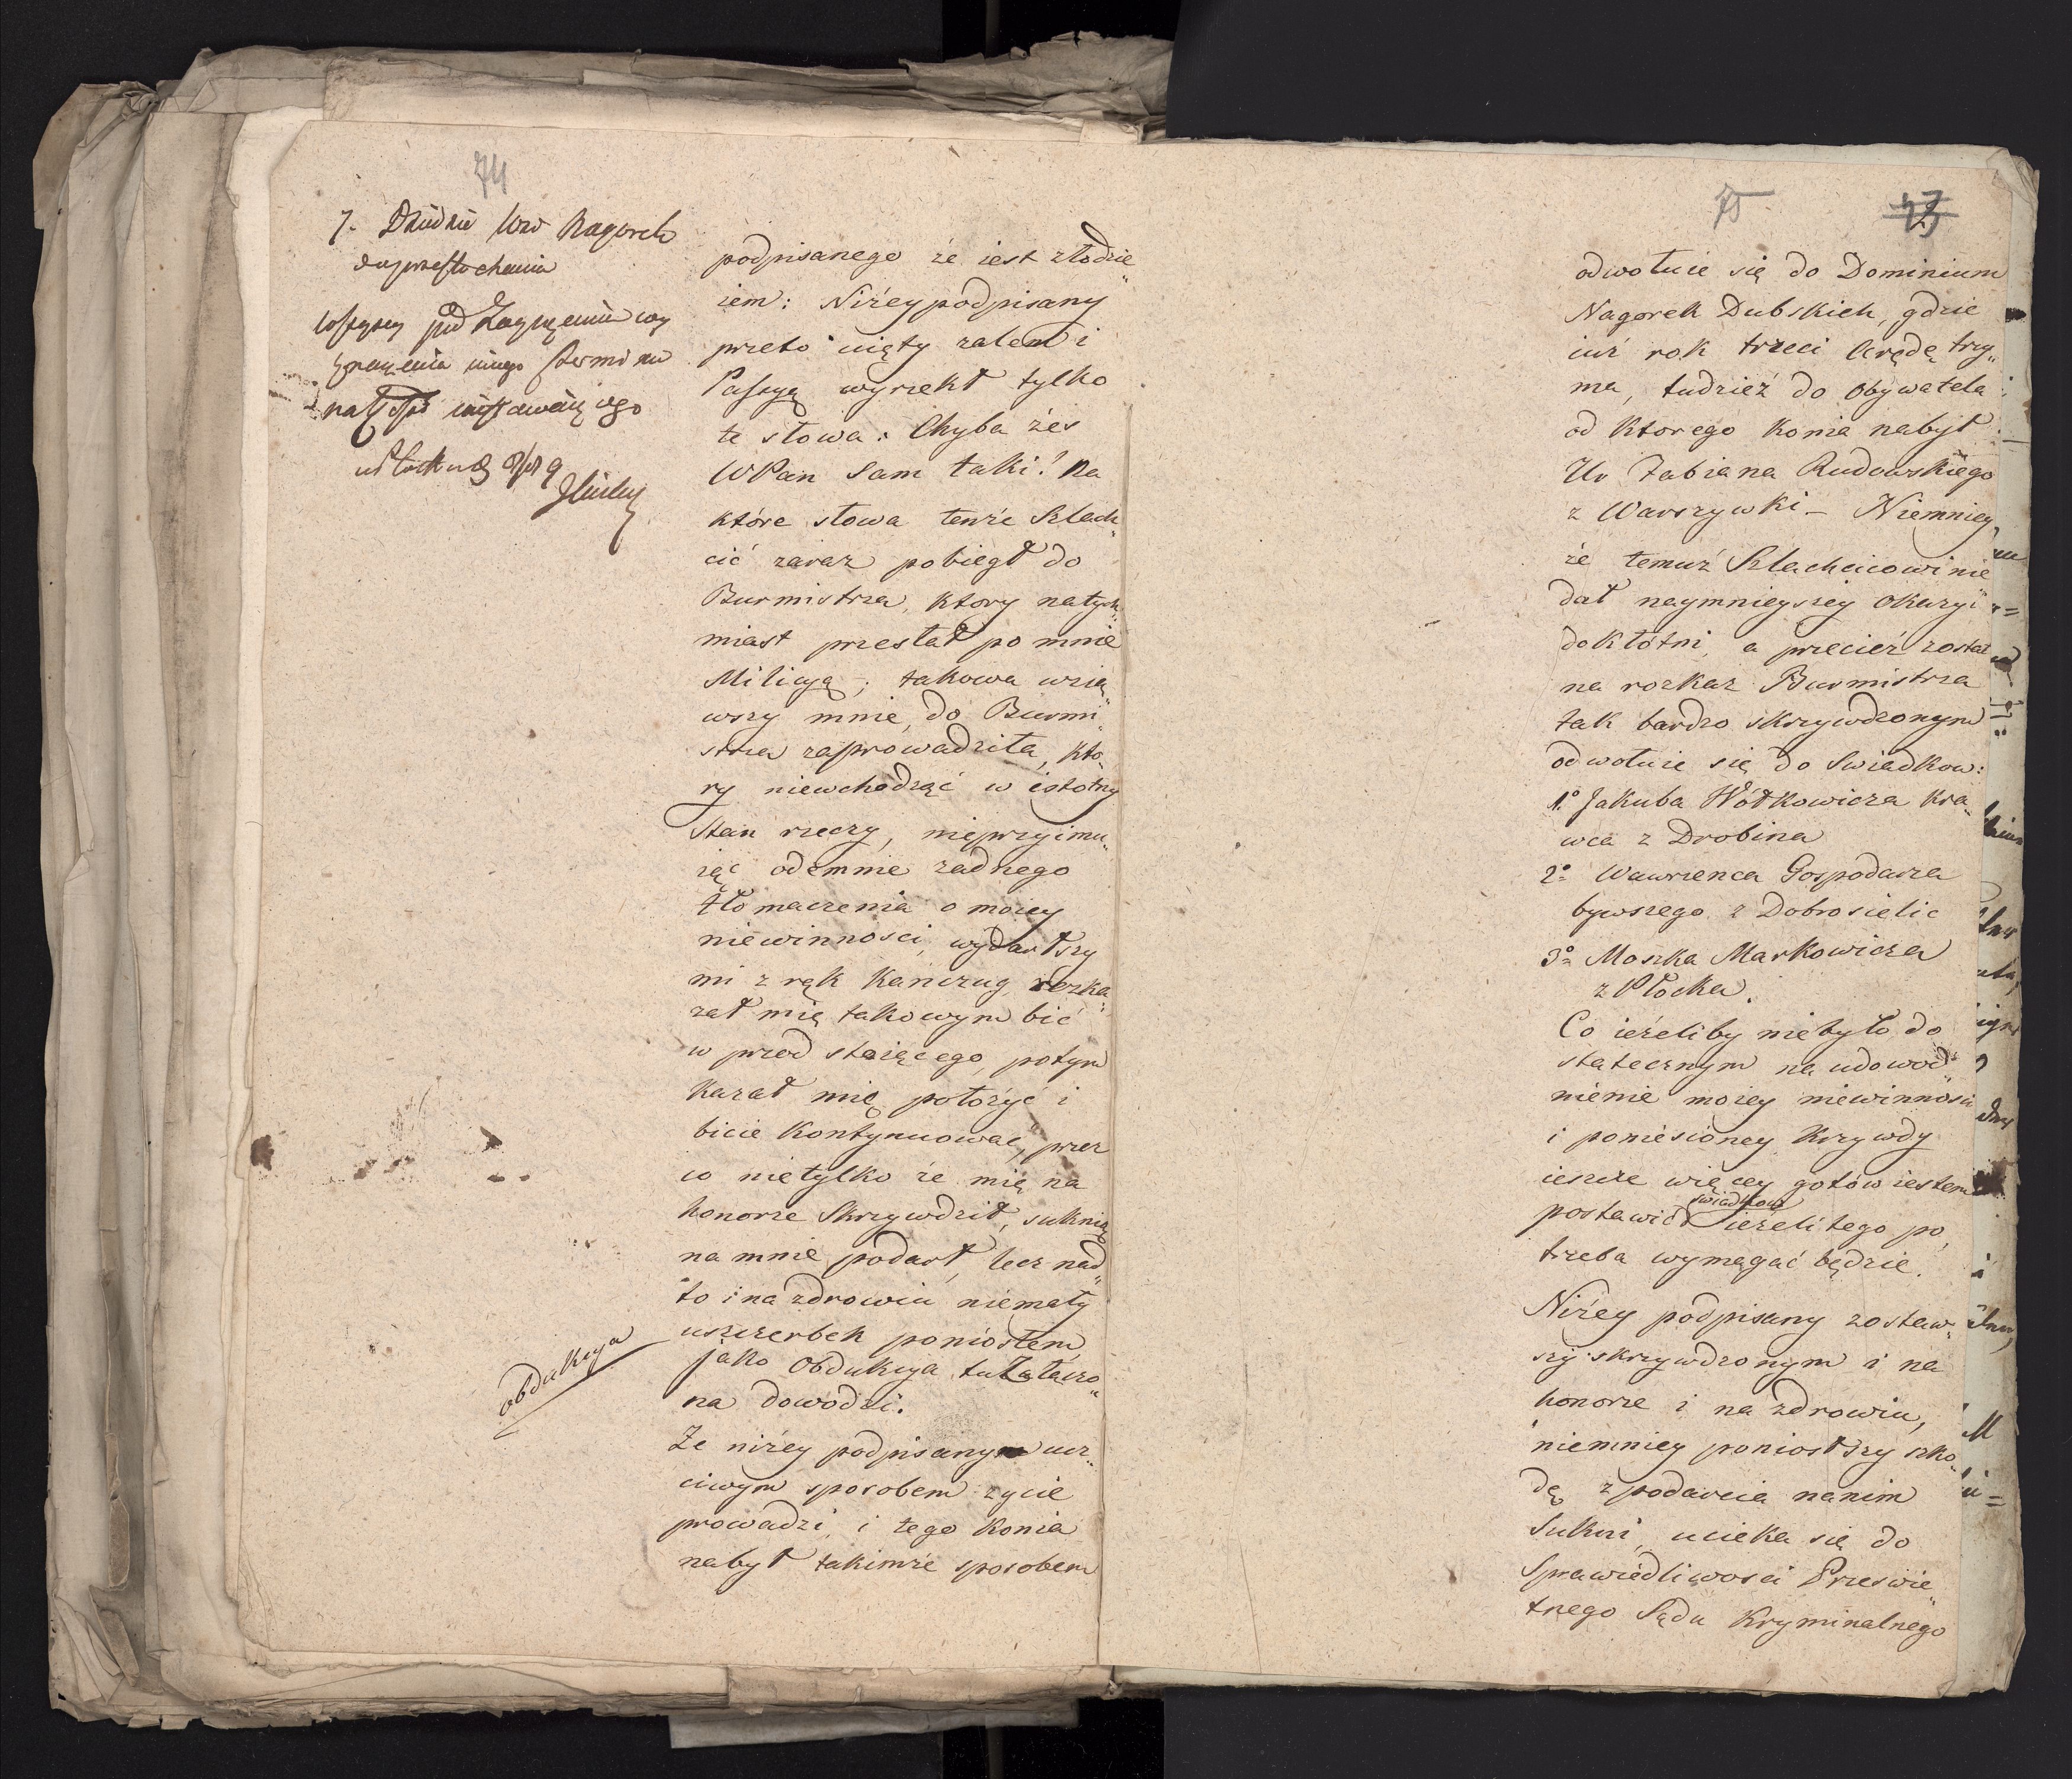 74
7. 
podpisanego że iest złodzie„
iem: Niżey podpisany
przeto uięty żalem i
Passyą wyrzekł tylko
te słowa: Chyba żes
WPan Sam taki! na
które słowa tenże Szlach„
cić zaraz pobiegł do
Burmistrza, ktory natych„
miast przesłał po mnie
Milicyą; takowa wzią„
wszy mnie, do Burmi„
strza zaprowadziła, kto„
ry niewchodząć w istotny
Stan rzeczy, nieprzyimu„
iąć odemnie zadnego
tłomaczenia o moiey
niewinnosci, wydartszy
mi z rąk Kańczug, rozka„
zał mię takowym bić
w przod stoiącego, potym
kazał mię położyć i
bicie Kontynuować, przez
co nietylko że mię na
honorze Skrzywdził, suknią
na mnie podarł, lecz nad„
to i na zdrowiu niemały
uszczerbek poniosłem,
jako Obdukcya tu załączo„
na dowodzi.
obdukcya
Ze niżey podpisany ucz„
ciwym sposobem zycie
prowadzi, i tego Konia
nabył takimże sposobem
75
23
odwołuie się do Dominium
Nagorek Dubskich, gdzie
iuż rok trzeci Arędę trzy„
ma, tudzież do Obywatela
od Ktorego Konia nabył
Ur Fabiana Rudowskiego
z Warszywki – Niemniey,
że temuż Szlachcicowi nie
dał naymnieyszey Okazyi
do Kłótni, a przecież został
na rozkaz Burmistrza
tak bardzo skrzywdzonym
odwołuie się do Swiadkow:
1.o Jakuba Wółkowicza Kra„
wca z Drobina
2o Wawrzenca Gospodarza
bywszego z Dobrosielic
3o Moszka Markowicza
z Płocka.
Co ieżeliby niebyło do„
statecznym na udowod„
nienie moiey niewinnosci
i poniesioney Krzywdy
ieszcze więcey gotów iestem
postawić swiadkow ieżeli tego po„
trzeba wymagać będzie.
Niżey podpisany zostaw„
szy skrzywdzonym i na
honorze i na zdrowiu,
niemniey poniosłszy szko„
dę z podarcia na nim
Sukni, ucieka się do
Sprawiedliwosci Przeswie„
tnego Sądu Kryminalnego